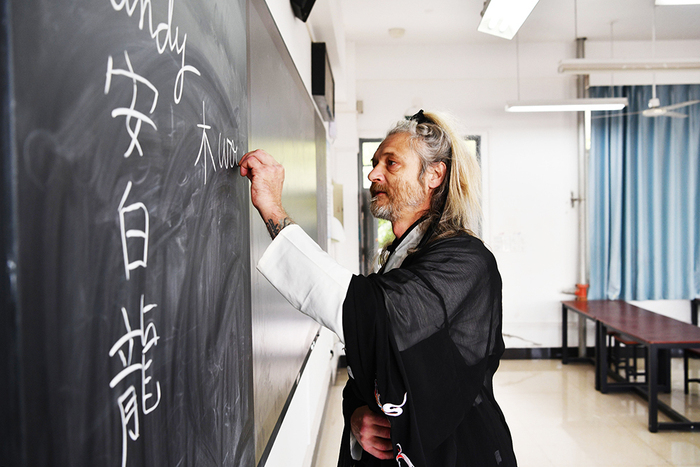 andy
安白龍
木 wo